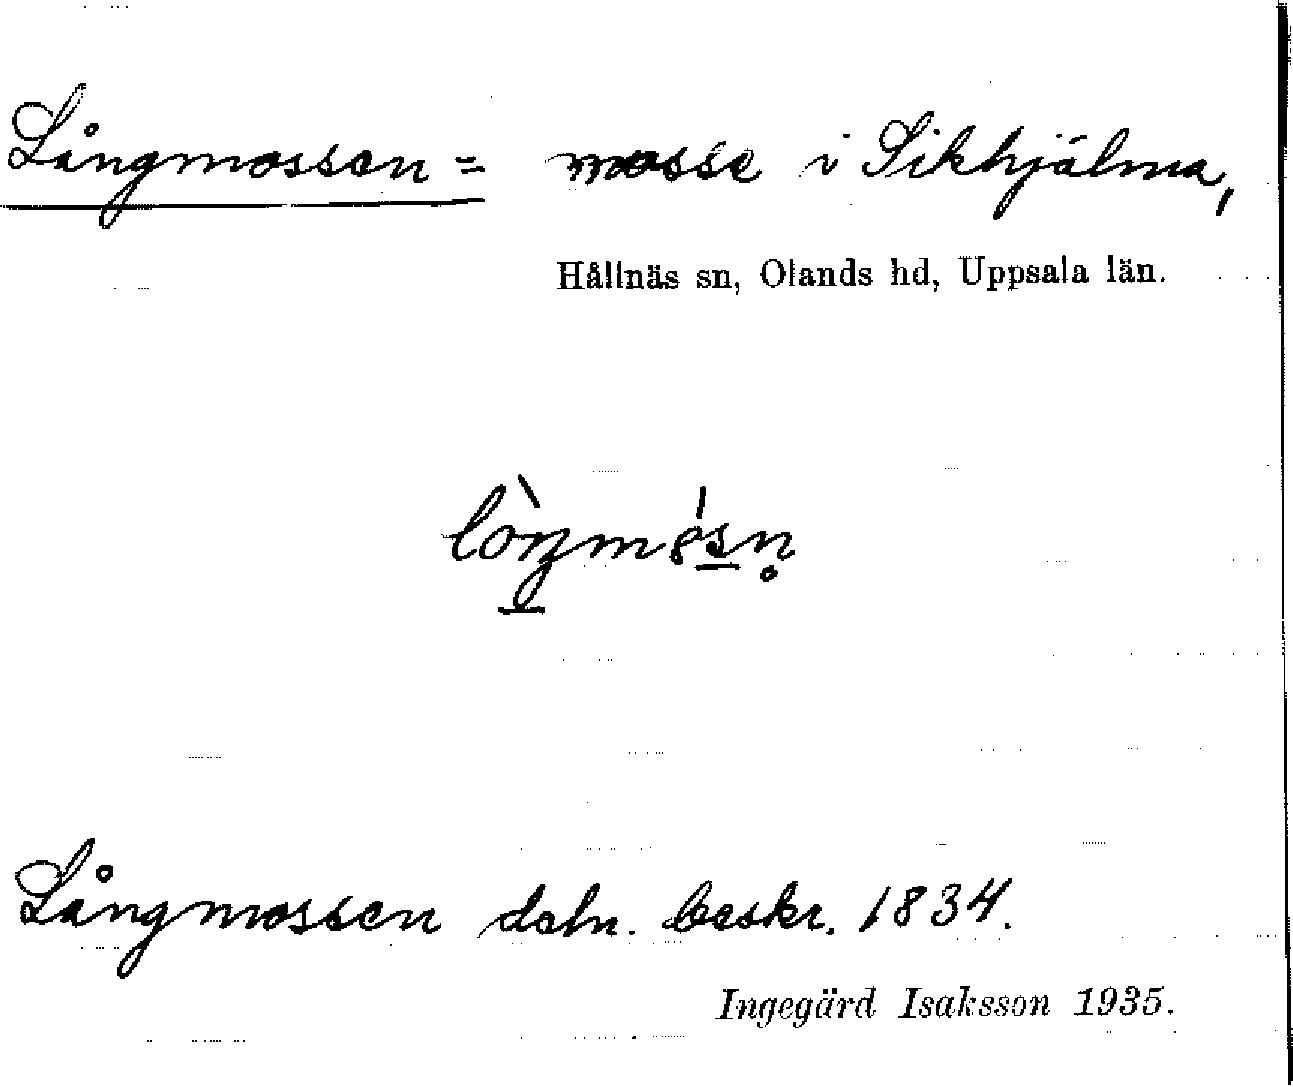 Långmossen = mosse i Sikhjälma,
Hållnäs sn, Olands hd, Uppsala län.
Långmossen deln. beskr. 1834.
Ingegärd Isaksson 1935.